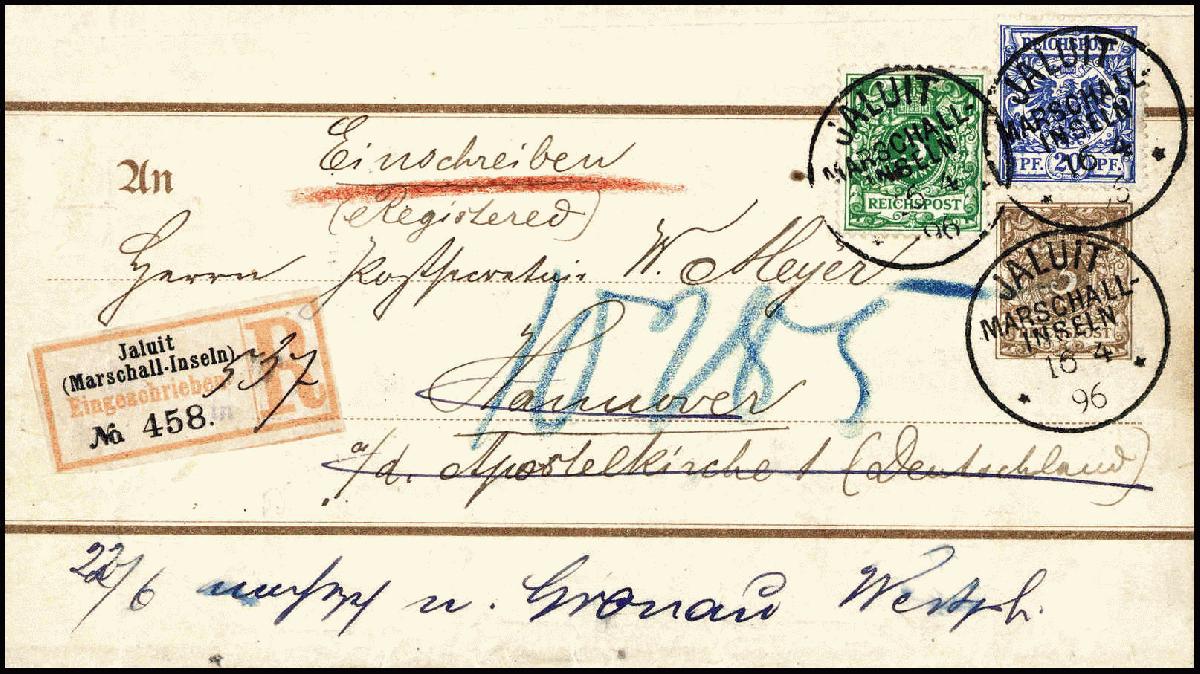 REICHSPOST
PF. 20 PF.
JALUIT
MARSCHALL-
INSELN
16 4
96
REICHSPOST
JALUIT
MARSCHALL-
INSELN
16 4
96
3
JALUIT
MARSCHALL-
INSELN
16 4
96
An
Einschreiben
(Registered)
Herrn Postsecretair W. Meyer
Hannover
a/d. Apostelkirche 1 (Deutschland)
Jaluit
(Marschall-Inseln)
Eingeschrieben
No 458.
R
337
22/6 n. Gronau Westph.